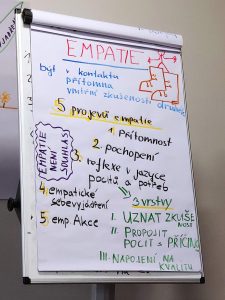 EMPATIE
být v kontaktu
přítomna
vnitřní zkušenosti druhé
5 projevů empatie
1. Přítomnost
2. pochopení
3. reflexe v jazyce
pocitů a potřeb
EMPATIE
NENÍ
SOUHLAS
4. empatické
sebevyjádření
5. emp. Akce
3 vrstvy
I. UZNAT ZKUŠE
NOST
II. PROPOJIT
POCIT S PŘÍČINOU
III. NAPOJENÍ NA
KVALITU